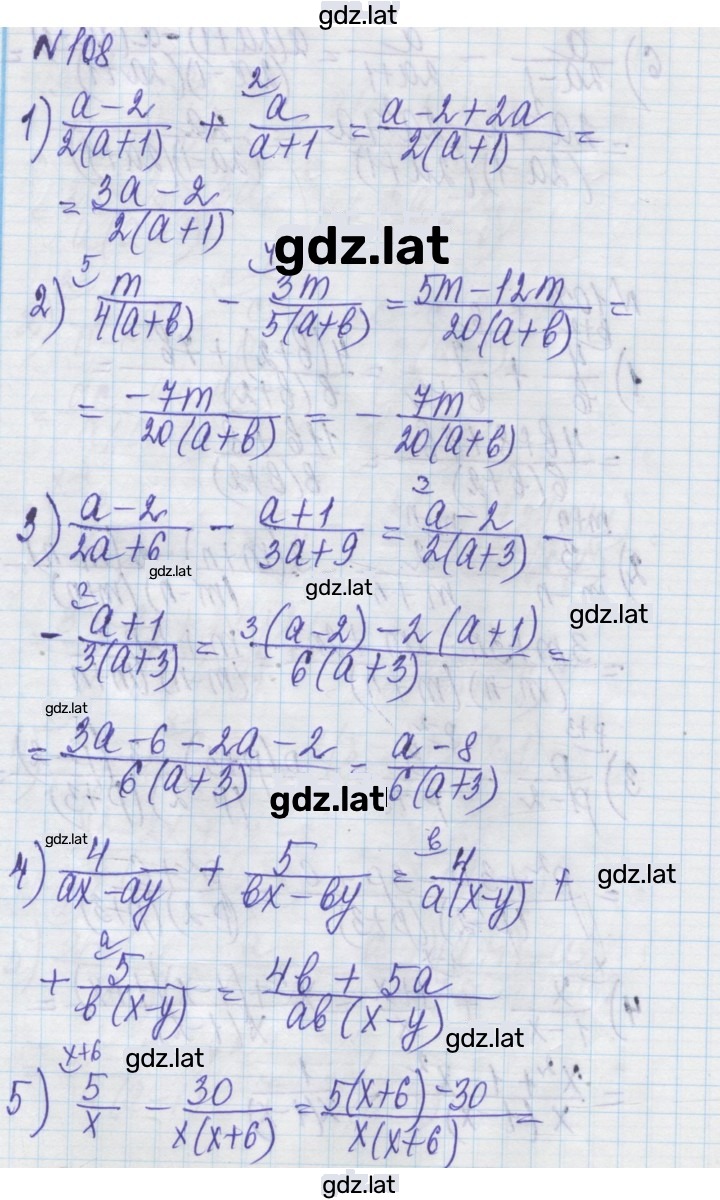 gdz.lat
N 108
1) (a-2)/(2(a+1)) + a/(a+1) ² = (a-2+2a)/(2(a+1)) =
= (3a-2)/(2(a+1))
gdz.lat
2) m/(4(a+в)) ⁵ - 3m/(5(a+в)) ⁴ = (5m-12m)/(20(a+в)) =
= (-7m)/(20(a+в)) = - 7m/(20(a+в))
3) (a-2)/(2a+6) - (a+1)/(3a+9) = (a-2)/(2(a+3)) ³ -
gdz.lat
gdz.lat
gdz.lat
- (a+1)/(3(a+3)) ² = (3(a-2)-2(a+1))/(6(a+3)) =
gdz.lat
= (3a-6-2a-2)/(6(a+3)) = (a-8)/(6(a+3))
gdz.lat
gdz.lat
4) 4/(ax-ay) + 5/(вx-вy) = 4/(a(x-y)) ᵇ +
gdz.lat
+ 5/(в(x-y)) ᵃ = (4в+5a)/(aв(x-y))
gdz.lat
gdz.lat
x+6
5) 5/x - 30/(x(x+6)) = (5(x+6)-30)/(x(x+6)) =
gdz.lat